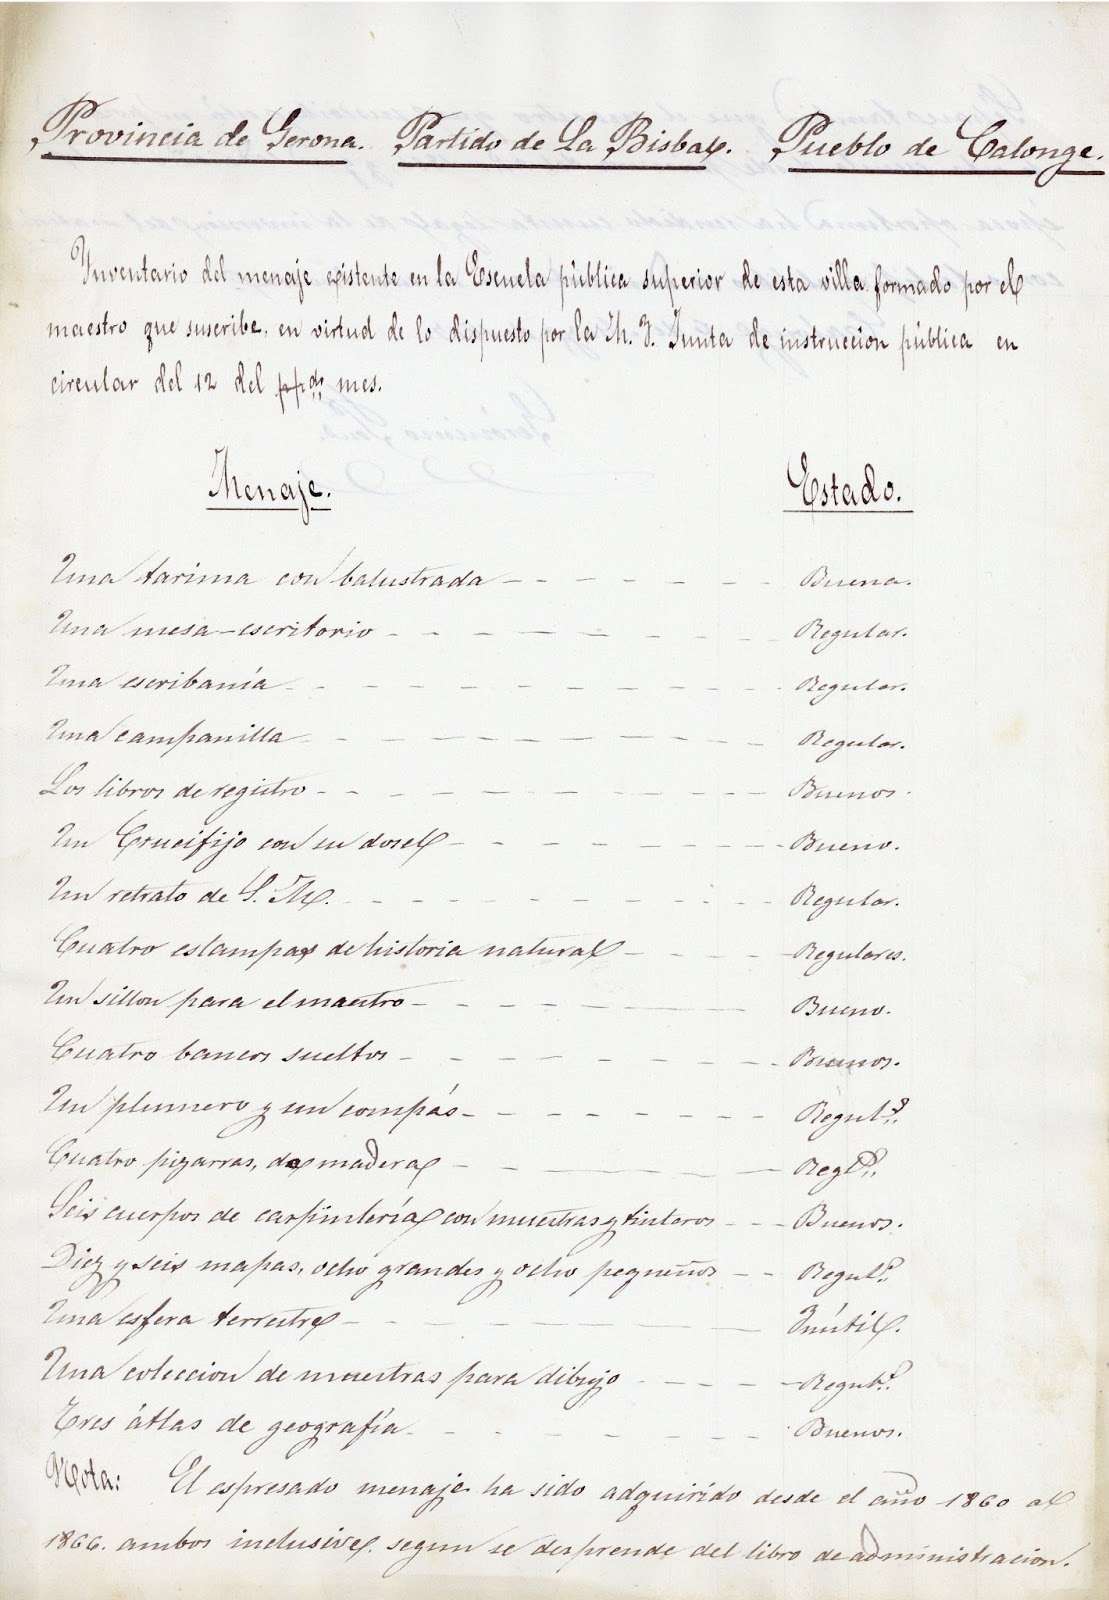 Provincia de Gerona. Partido de La Bisbal. Pueblo de Calonge.
Ynventario del menaje existente en la Escuela pública superior de esta villa formado por el
maestro que suscribe, en virtud de lo dispuesto por la M. Y. Junta de instruccion pública en
circular del 12 del ppdo mes.
Menaje. Estado.
Una tarima con balustrada - - - - - - - Buena.
Una mesa-escritorio - - - - - - - Regular.
Una escribanía - - - - - - - Regular.
Una campanilla - - - - - - - Regular.
Los libros de registro - - - - - - - Buenos.
Un Crucifijo con su dosel - - - - - - - Bueno.
Un retrato de S. M. - - - - - - - Regular.
Cuatro estampas de historia natural - - - - Regulares.
Un sillon para el maestro - - - - - - - Bueno.
Cuatro bancos sueltos - - - - - - - Buenos.
Un plumero y un compás - - - - - - - Regul.s
Cuatro pizarras, de madera - - - - - Regl.s
Seis cuerpos de carpintería con muestras y tinteros - - - Buenos.
Diez y seis mapas, ocho grandes y ocho pequeños - - Regul.s
Una esfera terrestre - - - - - - Ynútil.
Una coleccion de muestras para dibujo - - - - Regul.r
Tres átlas de geografía - - - - - - Buenos.
Nota: El espresado menaje ha sido adquirido desde el año 1860 al
1866. ambos inclusive. segun se desprende del libro de administracion.